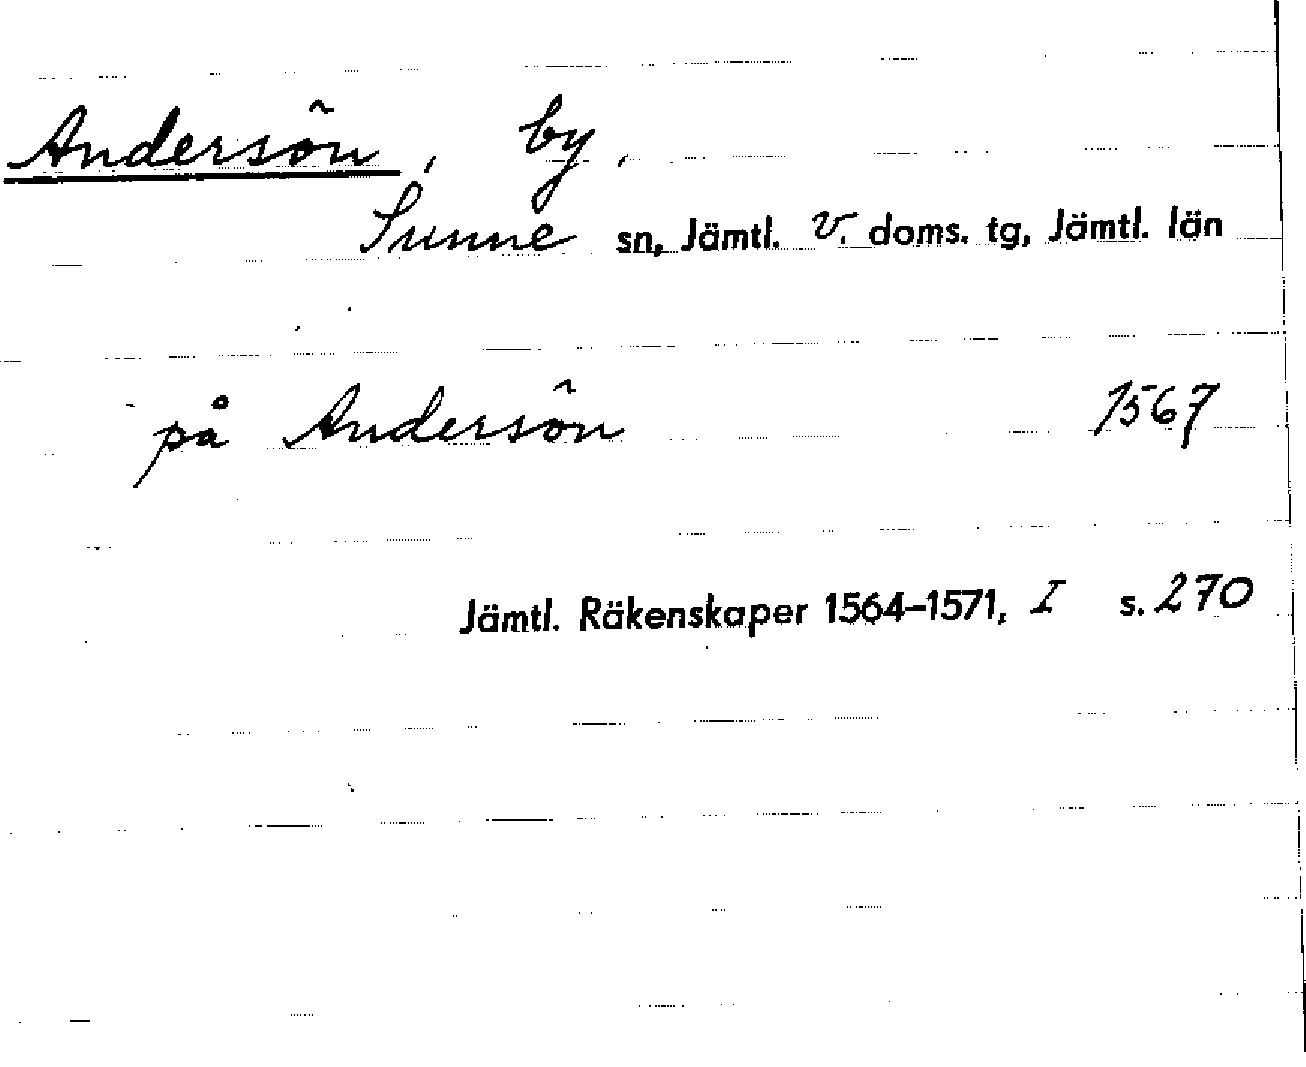 Andersön, by,
Sunne sn, Jämtl. v. doms. tg, Jämtl. län
på Andersön 1567
Jämtl. Räkenskaper 1564–1571, I s. 270